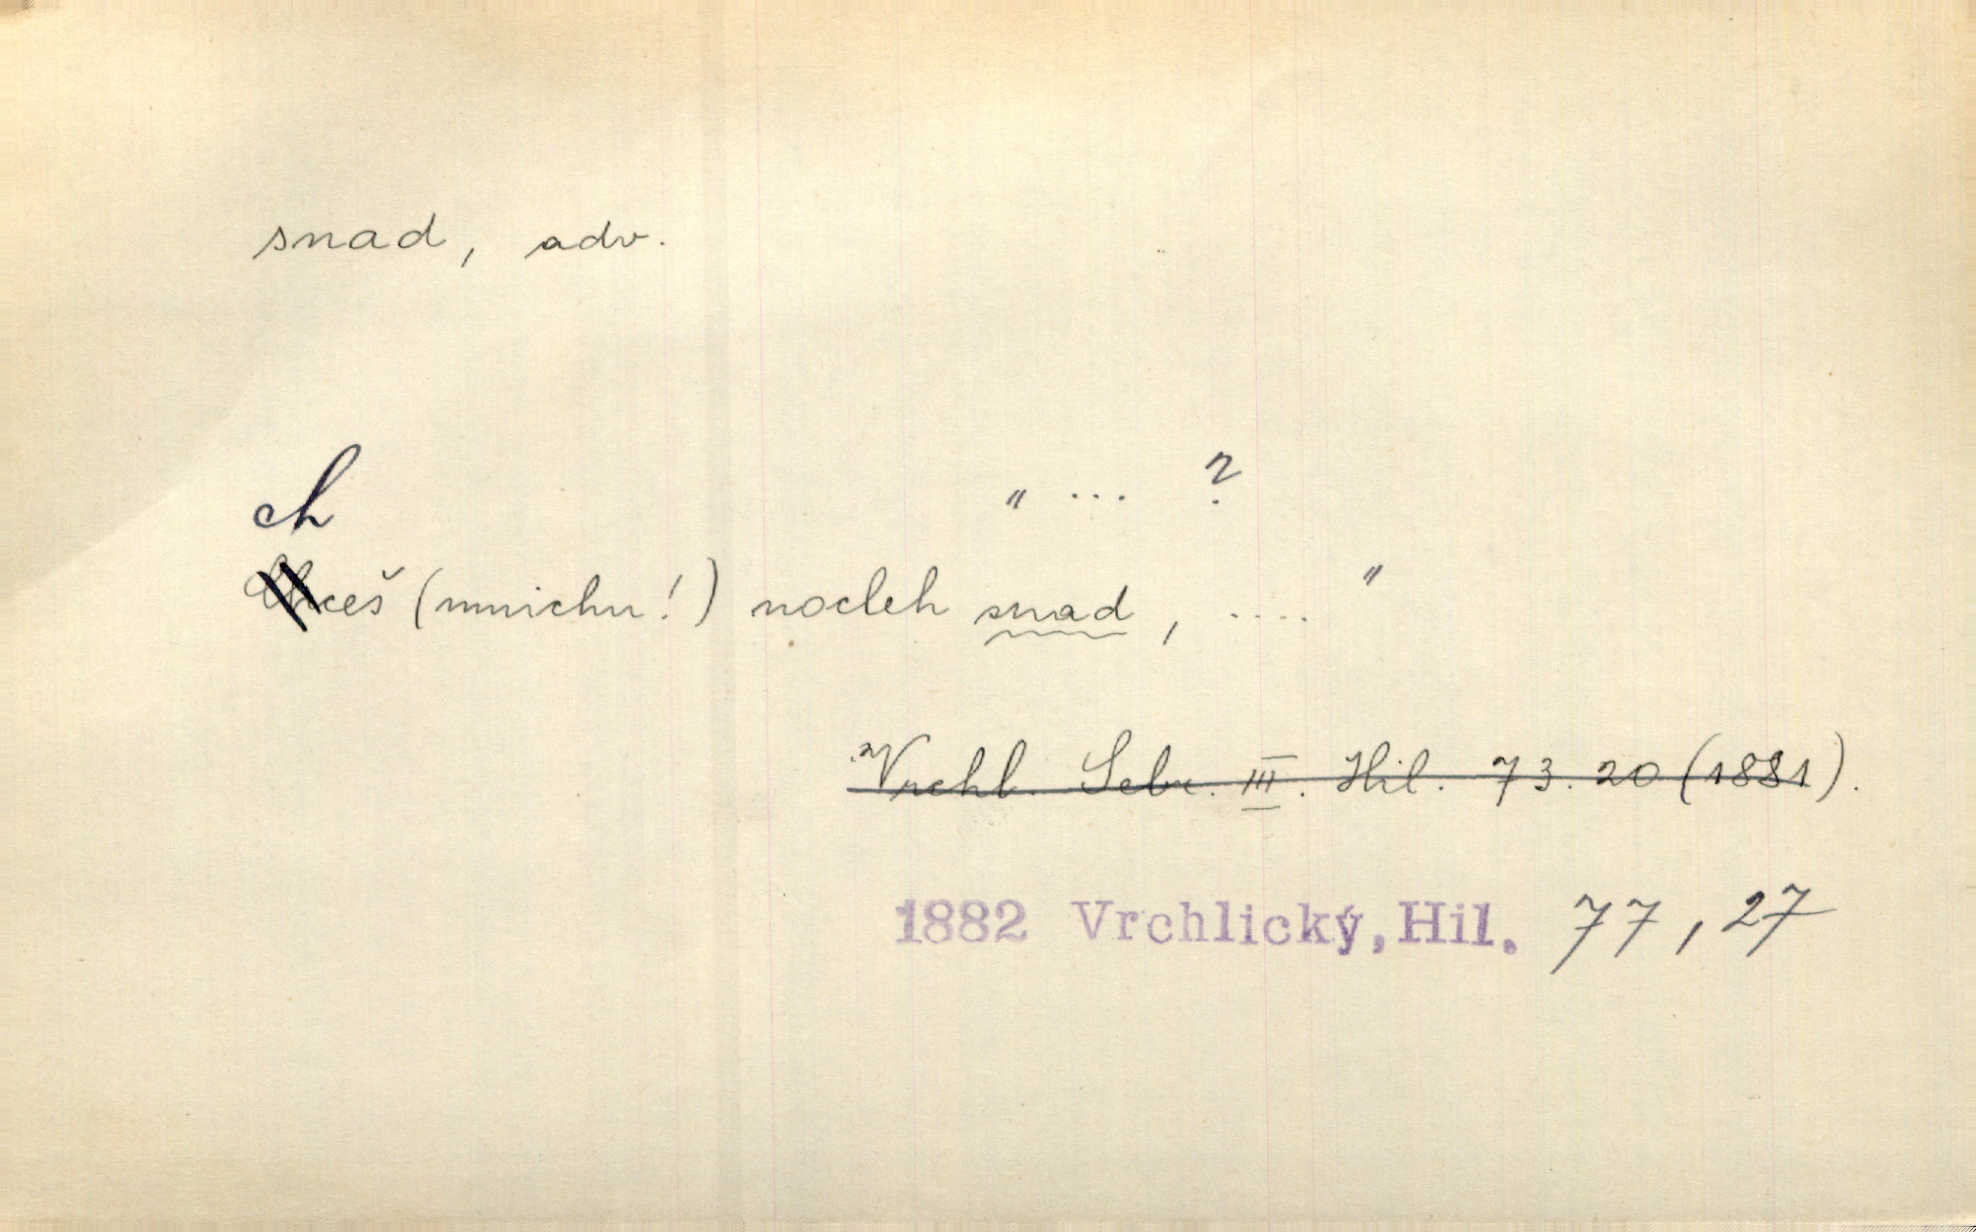 snad, adv.
ch „ ... ?
Chceš (mnichu!) nocleh snad, .... "
Vrchl. Sebr. III. Hil. 73. 20 (1881).
1882 Vrchlický, Hil. 77, 27